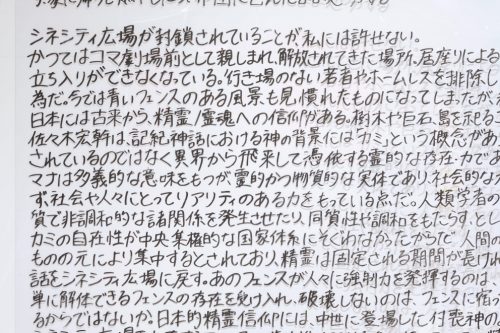 シネシティ広場が封鎖されていることが私には許せない。
かつてはコマ劇場前として親しまれ、解放されてきた場所。居座りによる
立ち入りができなくなっている。行き場のない若者やホームレスを排除し
為だ。今では青いフェンスのある風景も見慣れたものになってしまったが、
日本には古来から、精霊/霊魂への信仰がある。樹木や巨石、島を祀るコ
佐々木宏幹は、記紀神話における神の背景には「カミ」という概念があ
されているのではなく異界から飛来して憑依する霊的な存在・力で
マナは多義的な意味をもつが、霊的かつ物質的な実体であり、社会的な
ず、社会や人々にとってリアリティのある力をもっている点だ。人類学者の
質で非調和的な諸関係を発生させたり、同質性や調和をもたらす、とし
カミの自在性が中央集権的な国家体系にそぐわなかったからだ。人間の
ものの元により集中するとされており、精霊は固定される期間が長ければ
話をシネシティ広場に戻す。あのフェンスが人々に強制力を発揮するのは、
単に解体できるフェンスの存在を受け入れ、破壊しないのは、フェンスに宿っ
るからではないか。日本的精霊信仰には、中世に登場した付喪神の